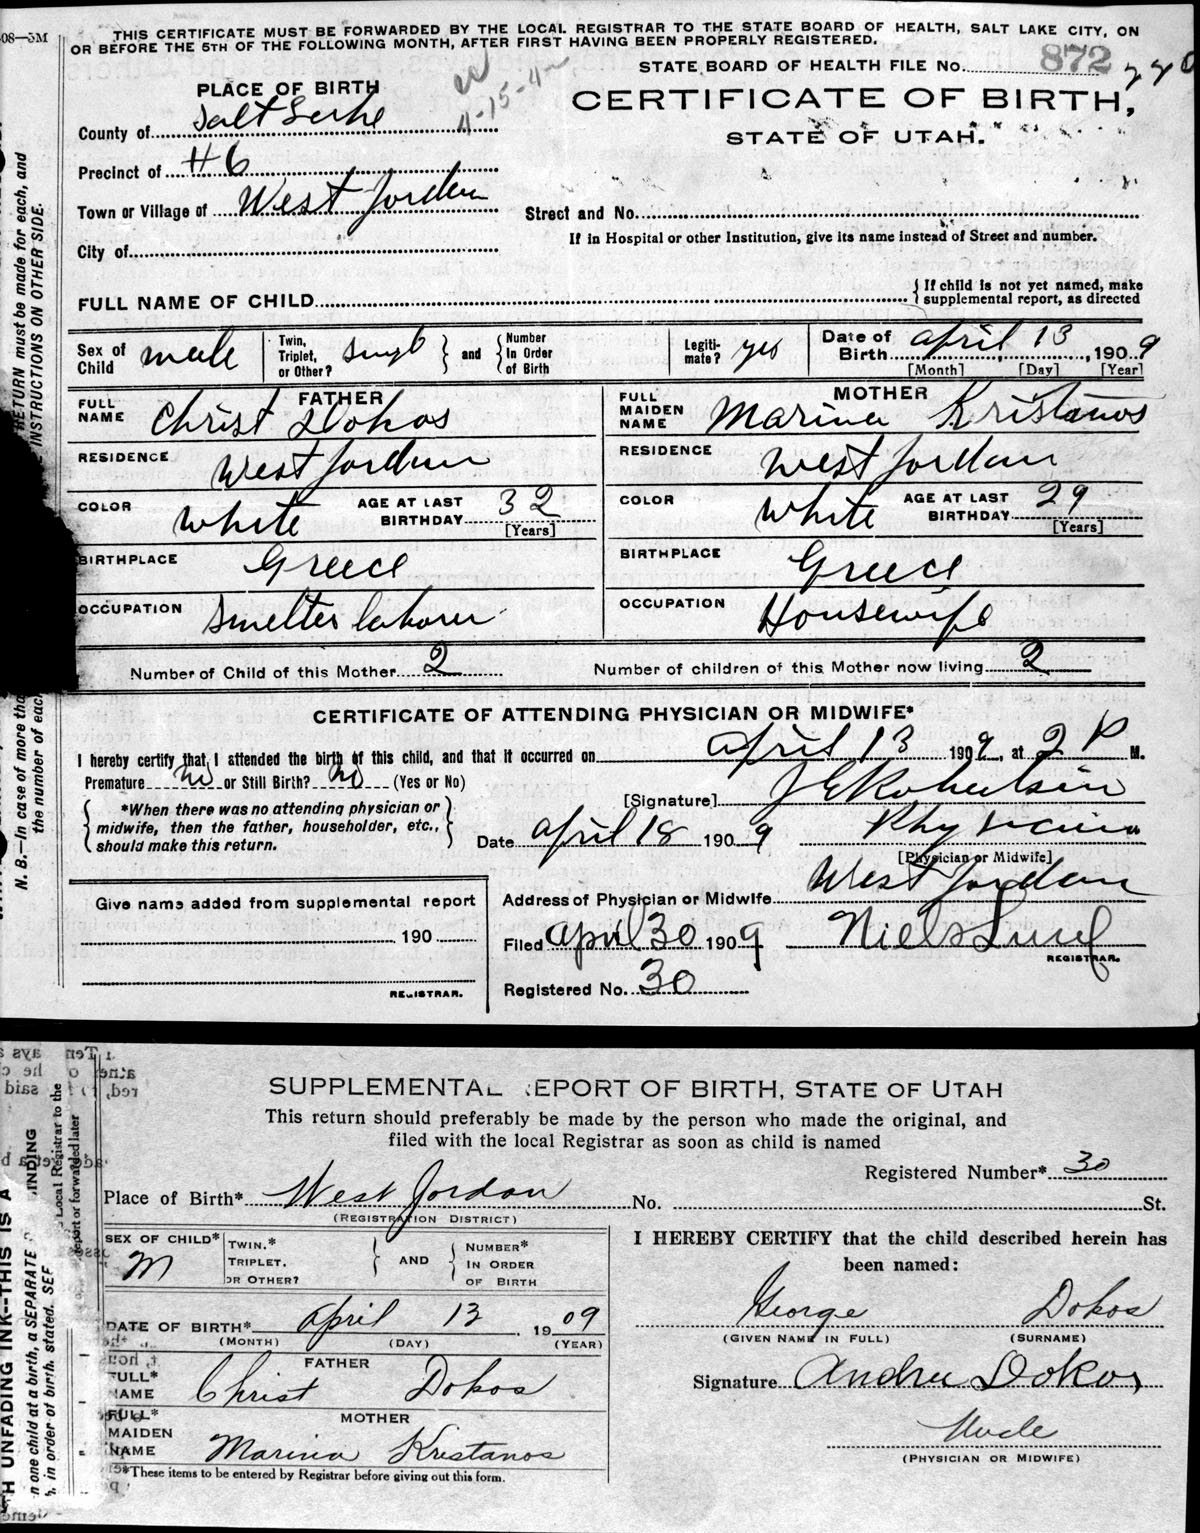 08—3M
THIS CERTIFICATE MUST BE FORWARDED BY THE LOCAL REGISTRAR TO THE STATE BOARD OF HEALTH, SALT LAKE CITY, ON
OR BEFORE THE 5TH OF THE FOLLOWING MONTH, AFTER FIRST HAVING BEEN PROPERLY REGISTERED.
STATE BOARD OF HEALTH FILE No. 872
4-15-4
PLACE OF BIRTH
CERTIFICATE OF BIRTH,
STATE OF UTAH.
County of Salt Lake
Precinct of #6
Town or Village of West Jordan
Street and No.
City of
If in Hospital or other Institution, give its name instead of Street and number.
FULL NAME OF CHILD
{ If child is not yet named, make
supplemental report, as directed
Sex of Child male
Twin, Triplet, or Other? single } and { Number In Order of Birth
Legiti- mate? yes
Date of Birth April 13, 1909
[Month] [Day] [Year]
FATHER
FULL NAME Christ Dokos
RESIDENCE West Jordan
COLOR White AGE AT LAST BIRTHDAY 32 [Years]
BIRTHPLACE Greece
OCCUPATION Smelter laborer
MOTHER
FULL MAIDEN NAME Marina Kristanos
RESIDENCE West Jordan
COLOR White AGE AT LAST BIRTHDAY 29 [Years]
BIRTHPLACE Greece
OCCUPATION Housewife
Number of Child of this Mother 2 Number of children of this Mother now living 2
CERTIFICATE OF ATTENDING PHYSICIAN OR MIDWIFE*
I hereby certify that I attended the birth of this child, and that it occurred on April 13 1909, at 2 P M.
Premature no or Still Birth? no (Yes or No)
{ *When there was no attending physician or
midwife, then the father, householder, etc.,
should make this return. }
[Signature] J E Robertson
Date April 18 1909 Physician
[Physician or Midwife]
Address of Physician or Midwife West Jordan
Give name added from supplemental report
190
REGISTRAR.
Filed April 30 1909 Niels Lind
REGISTRAR.
Registered No. 30
RETURN must be made for each, and
INSTRUCTIONS ON OTHER SIDE.
N. B.—In case of more tha
the number of each,
SUPPLEMENTAL REPORT OF BIRTH, STATE OF UTAH
This return should preferably be made by the person who made the original, and
filed with the local Registrar as soon as child is named
Registered Number* 30
Place of Birth* West Jordan No. St.
(REGISTRATION DISTRICT)
SEX OF CHILD* M
TWIN.* TRIPLET. OR OTHER? } AND { NUMBER* IN ORDER OF BIRTH
DATE OF BIRTH* April 13, 1909
(MONTH) (DAY) (YEAR)
FATHER
FULL* NAME Christ Dokos
MOTHER
FULL* MAIDEN NAME Marina Kristanos
*These items to be entered by Registrar before giving out this form.
I HEREBY CERTIFY that the child described herein has
been named:
George Dokos
(GIVEN NAME IN FULL) (SURNAME)
Signature Andrew Dokos
Uncle
(PHYSICIAN OR MIDWIFE)
H UNFADING INK--THIS IS A
n one child at a birth, a SEPARATE
in order of birth. stated. SEE
Local Registrar to the
report or forwarded later